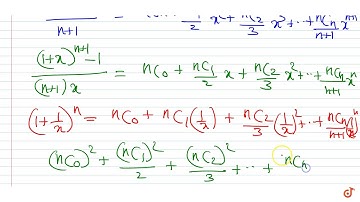 n+1 2 x² 3 x³ + ·· + nCn n+1 xⁿ⁺¹
((1+x)ⁿ⁺¹ - 1)/((n+1) x) = nC0 + nC1/2 x + nC2/3 x² + ·· + nCn/n+1 xⁿ
(1 + 1/x)ⁿ = nC0 + nC1 (1/x) + nC2/3 (1/x)² + ·· + nCn/n+1 (1/x)ⁿ
(nC0)² + (nC1)²/2 + (nC2)²/3 + ·· + nCn